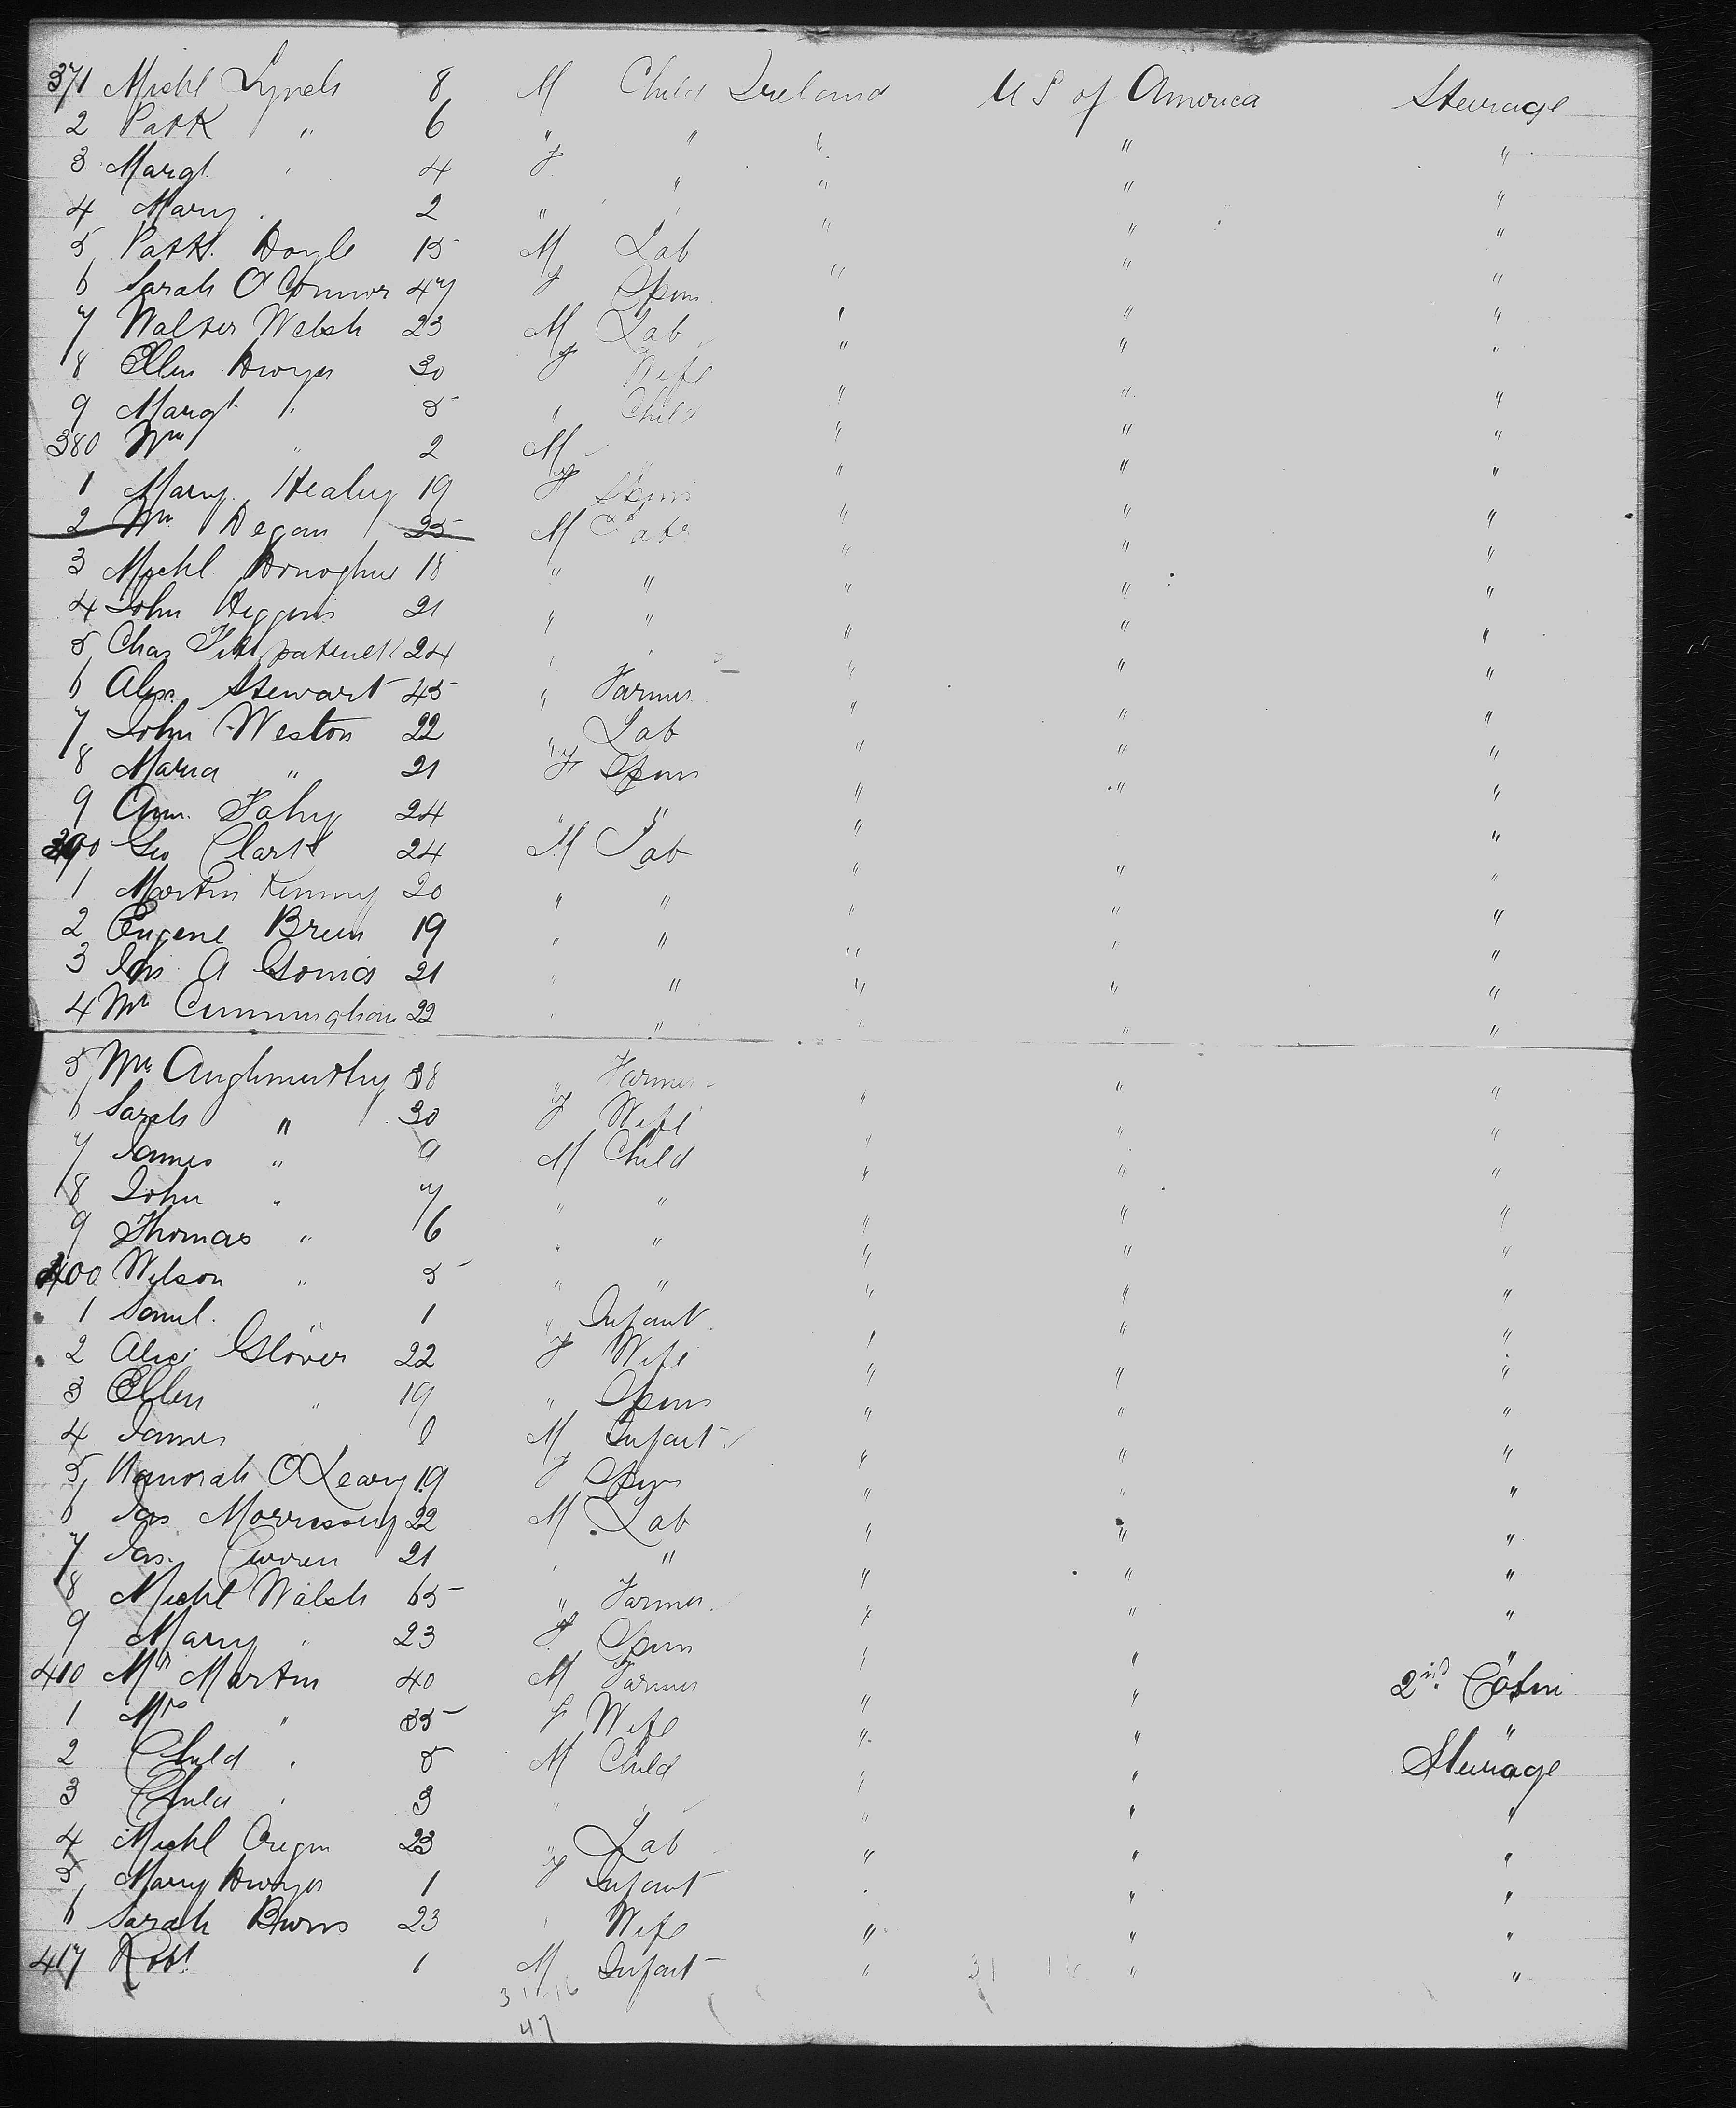 371 Michl Lynch 8 M Child Ireland U S of America Steerage
2 Patk " 6 " " " " "
3 Margt " 4 F " " " "
4 Mary " 2 " " " " "
5 Patk. Doyle 15 M Lab " " "
6 Sarah O'Connor 47 F Spins " " "
7 Walter Welsh 23 M Lab " " "
8 Ellen Dwyer 30 F Wife " " "
9 Margt " 5 " Child " " "
380 Wm " 2 M " " " "
1 Mary Healy 19 F Spins " " "
2 Wm Degan 25 M Labr " " "
3 Michl Donoghue 18 " " " " "
4 John Higgins 21 " " " " "
5 Chas Fitzpatrick 24 " " " " "
6 Alex. Stewart 45 " Farmer " " "
7 John Weston 22 " Lab " " "
8 Maria " 21 F Spins " " "
9 Ann Fahy 24 " " " " "
390 Geo Clark 24 M Lab " " "
1 Martin Kenny 20 " " " " "
2 Eugene Breen 19 " " " " "
3 A 21 " " " " "
4 Wm Cunningham 22 " " " " "
5 Wm Aughmurthy 38 " Farmer " " "
6 Sarah " 30 F Wife " " "
7 James " 9 M Child " " "
8 John " 7 " " " " "
9 Thomas " 6 " " " " "
400 Wilson " 5 " " " " "
1 Saml. " 1 " Infant " " "
2 Alice Glover 22 F Wife " " "
3 Ellen " 19 " Spins " " "
4 James 1 M Infant " " "
5 Hanorah O'Leary 19 F Spins " " "
6 Jas Morrissey 22 M Lab " " "
7 Jas. Curren 21 " " " " "
8 Michl Walsh 65 " Farmer " " "
9 Mary " 23 F Spins " " "
410 Mr Martin 40 M Farmer " " 2nd Cabin
1 Mrs " 35 F Wife " " "
2 Child " 5 M Child " " Steerage
3 Child " 3 " " " " "
4 Michl 23 " Lab " " "
5 Mary Dwyer 1 F Infant " " "
6 Sarah Burns 23 " Wife " " "
417 Robt 1 M Infant " 31 16 " "
31 16
47